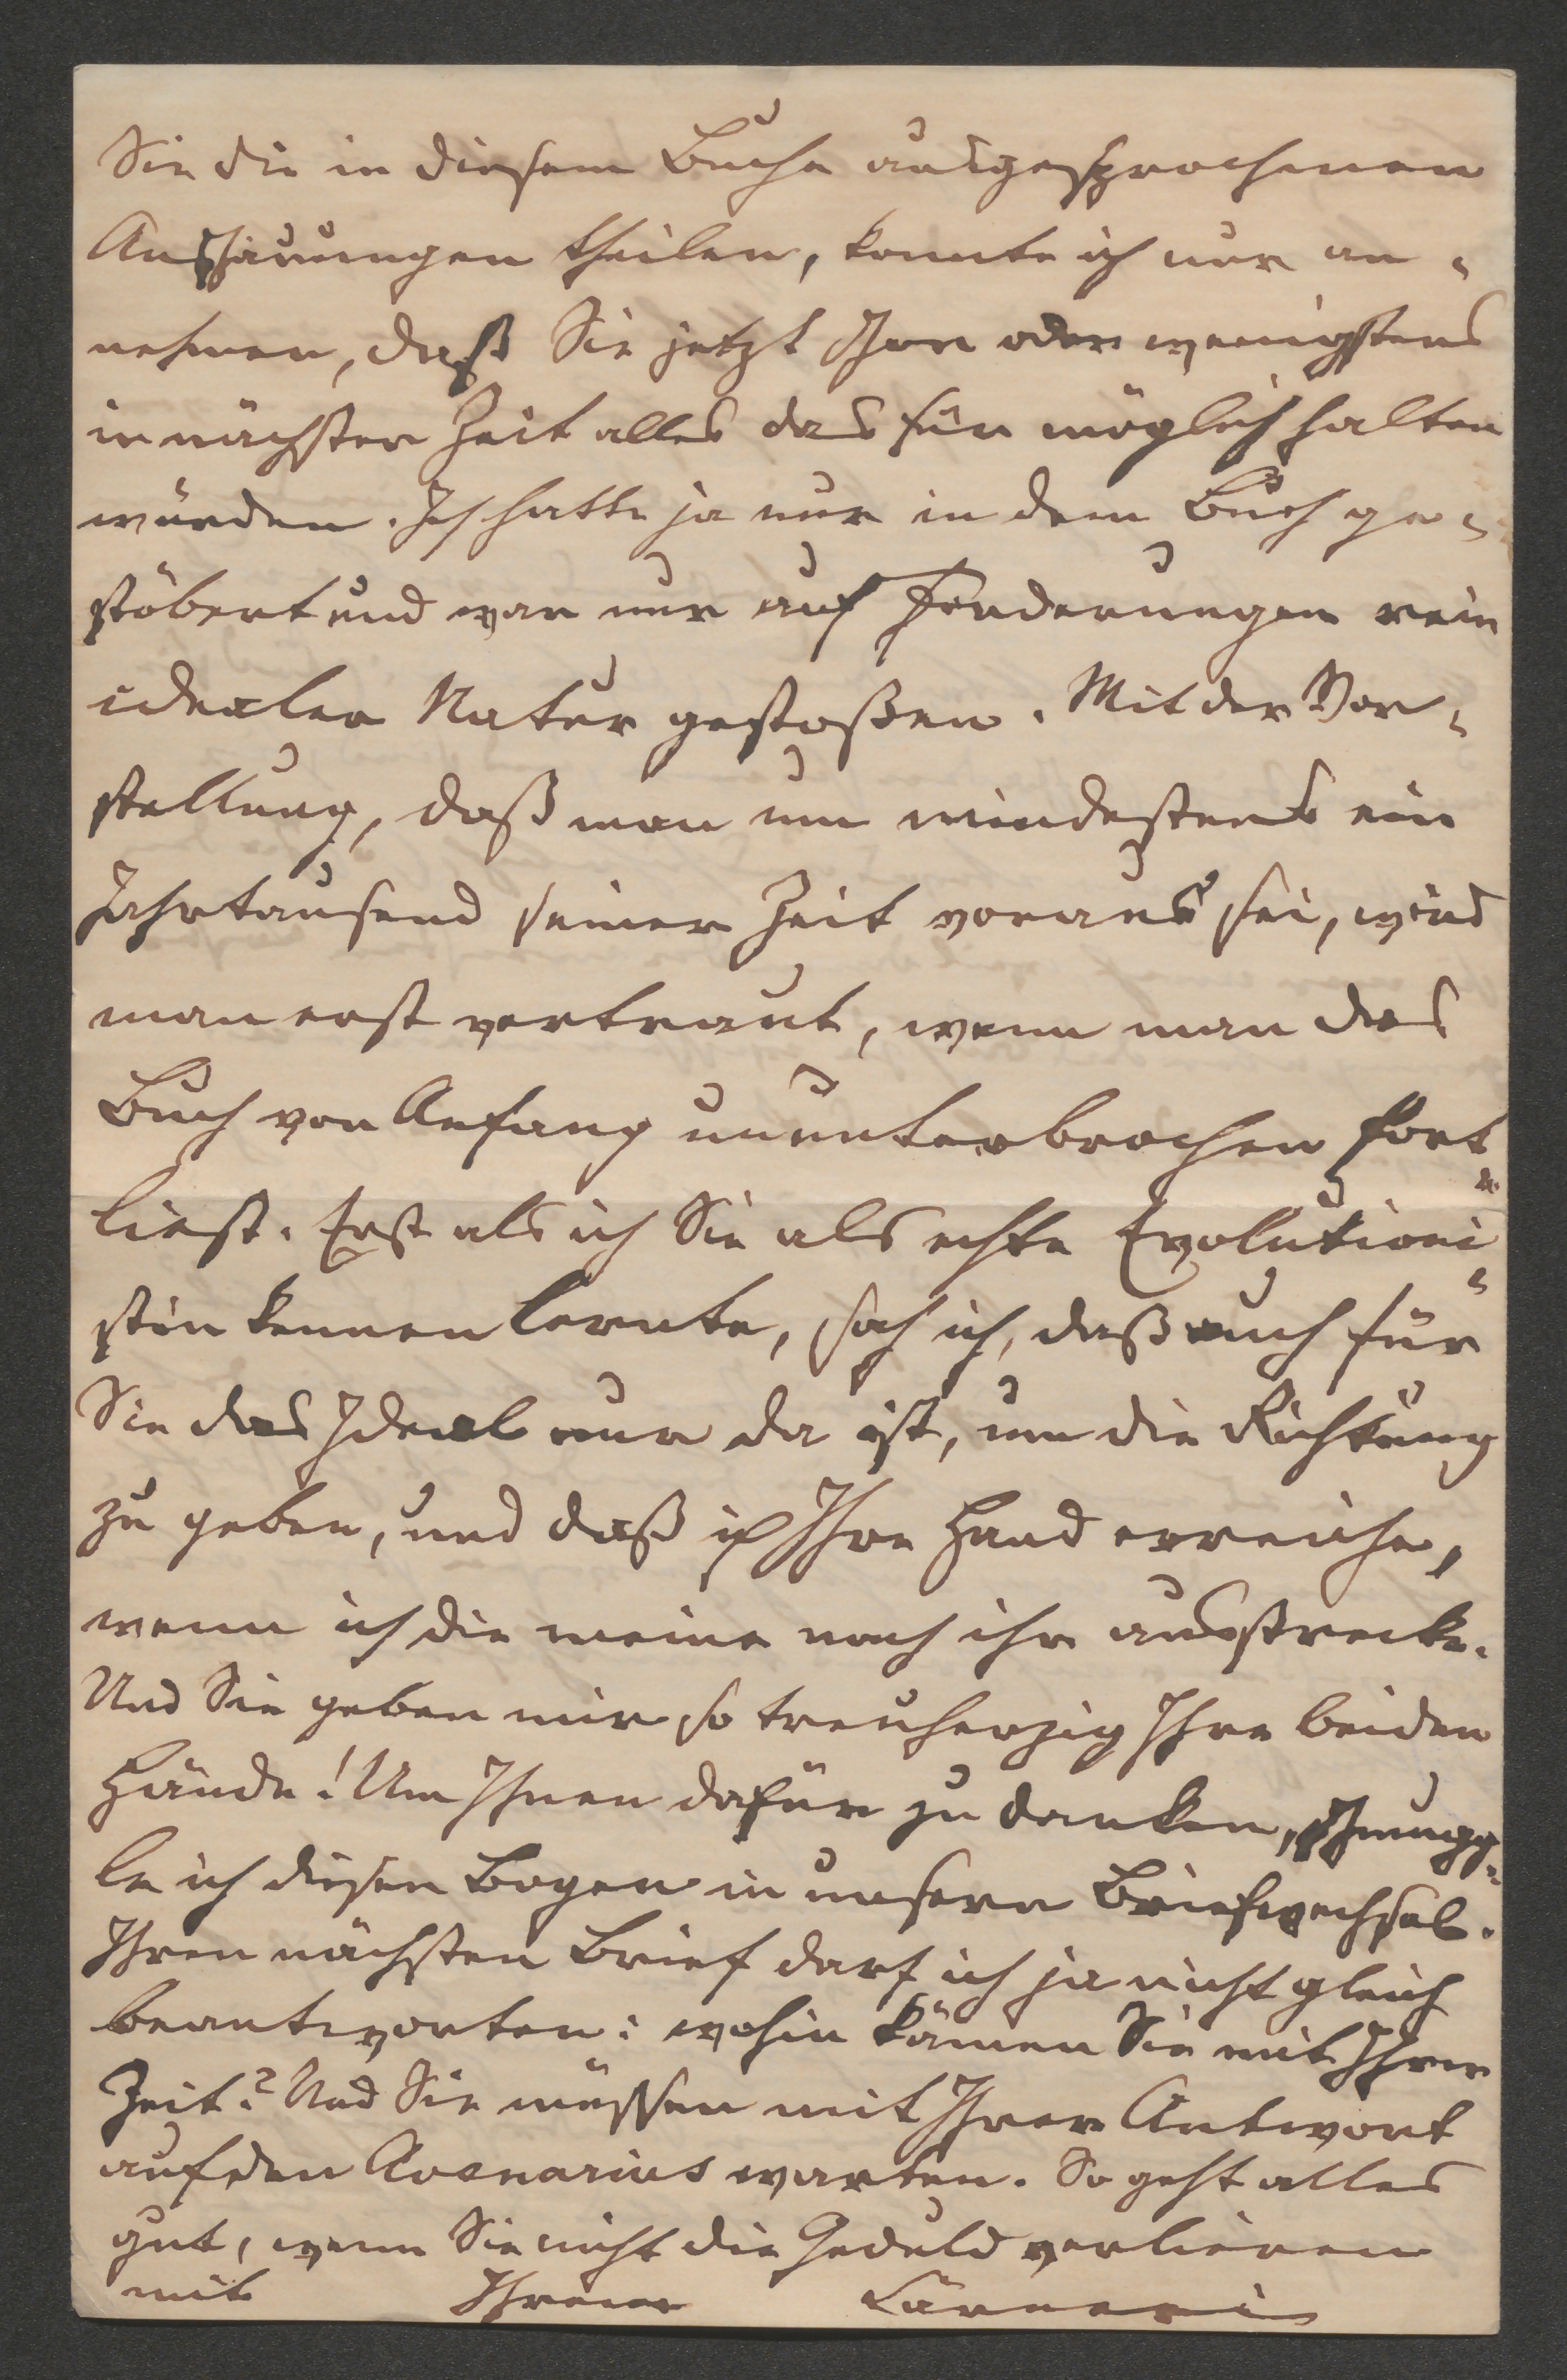 Sie die in diesem Buche ausgesprochenen
Anschauungen theilen, konnte ich nur an-
nehmen, daß Sie jetzt schon oder wenigstens
in nächster Zeit alles das für möglich halten
würden. Ich hatte ja nur in dem Buch ge-
stöbert und war nur auf Forderungen rein
idealer Natur gestoßen. Mit der Vor-
stellung, daß man um mindestens ein
Jahrtausend seiner Zeit voraus sei, wird
man erst vertraut, wenn man das
Buch von Anfang ununterbrochen fort-
liest. Erst als ich Sie als echte Evolutioni-
stin kennen lernte, sah ich, daß auch für
Sie das Ideal nur da ist, um die Richtung
zu geben, und daß ich Ihre Hand erreiche,
wenn ich die meine nach ihr ausstrecke.
Und Sie geben mir so treuherzig Ihre beiden
Hände! Um Ihnen dafür zu danken, schmugg-
le ich diesen Bogen in unsern Briefwechsel.
Ihren nächsten Brief darf ich ja nicht gleich
beantworten: wohin kämen Sie mit Ihrer
Zeit? Und Sie müssen mit Ihrer Antwort
auf den Avenarius warten. So geht alles
gut, wenn Sie nicht die Geduld verlieren
mit Ihrem Carneri